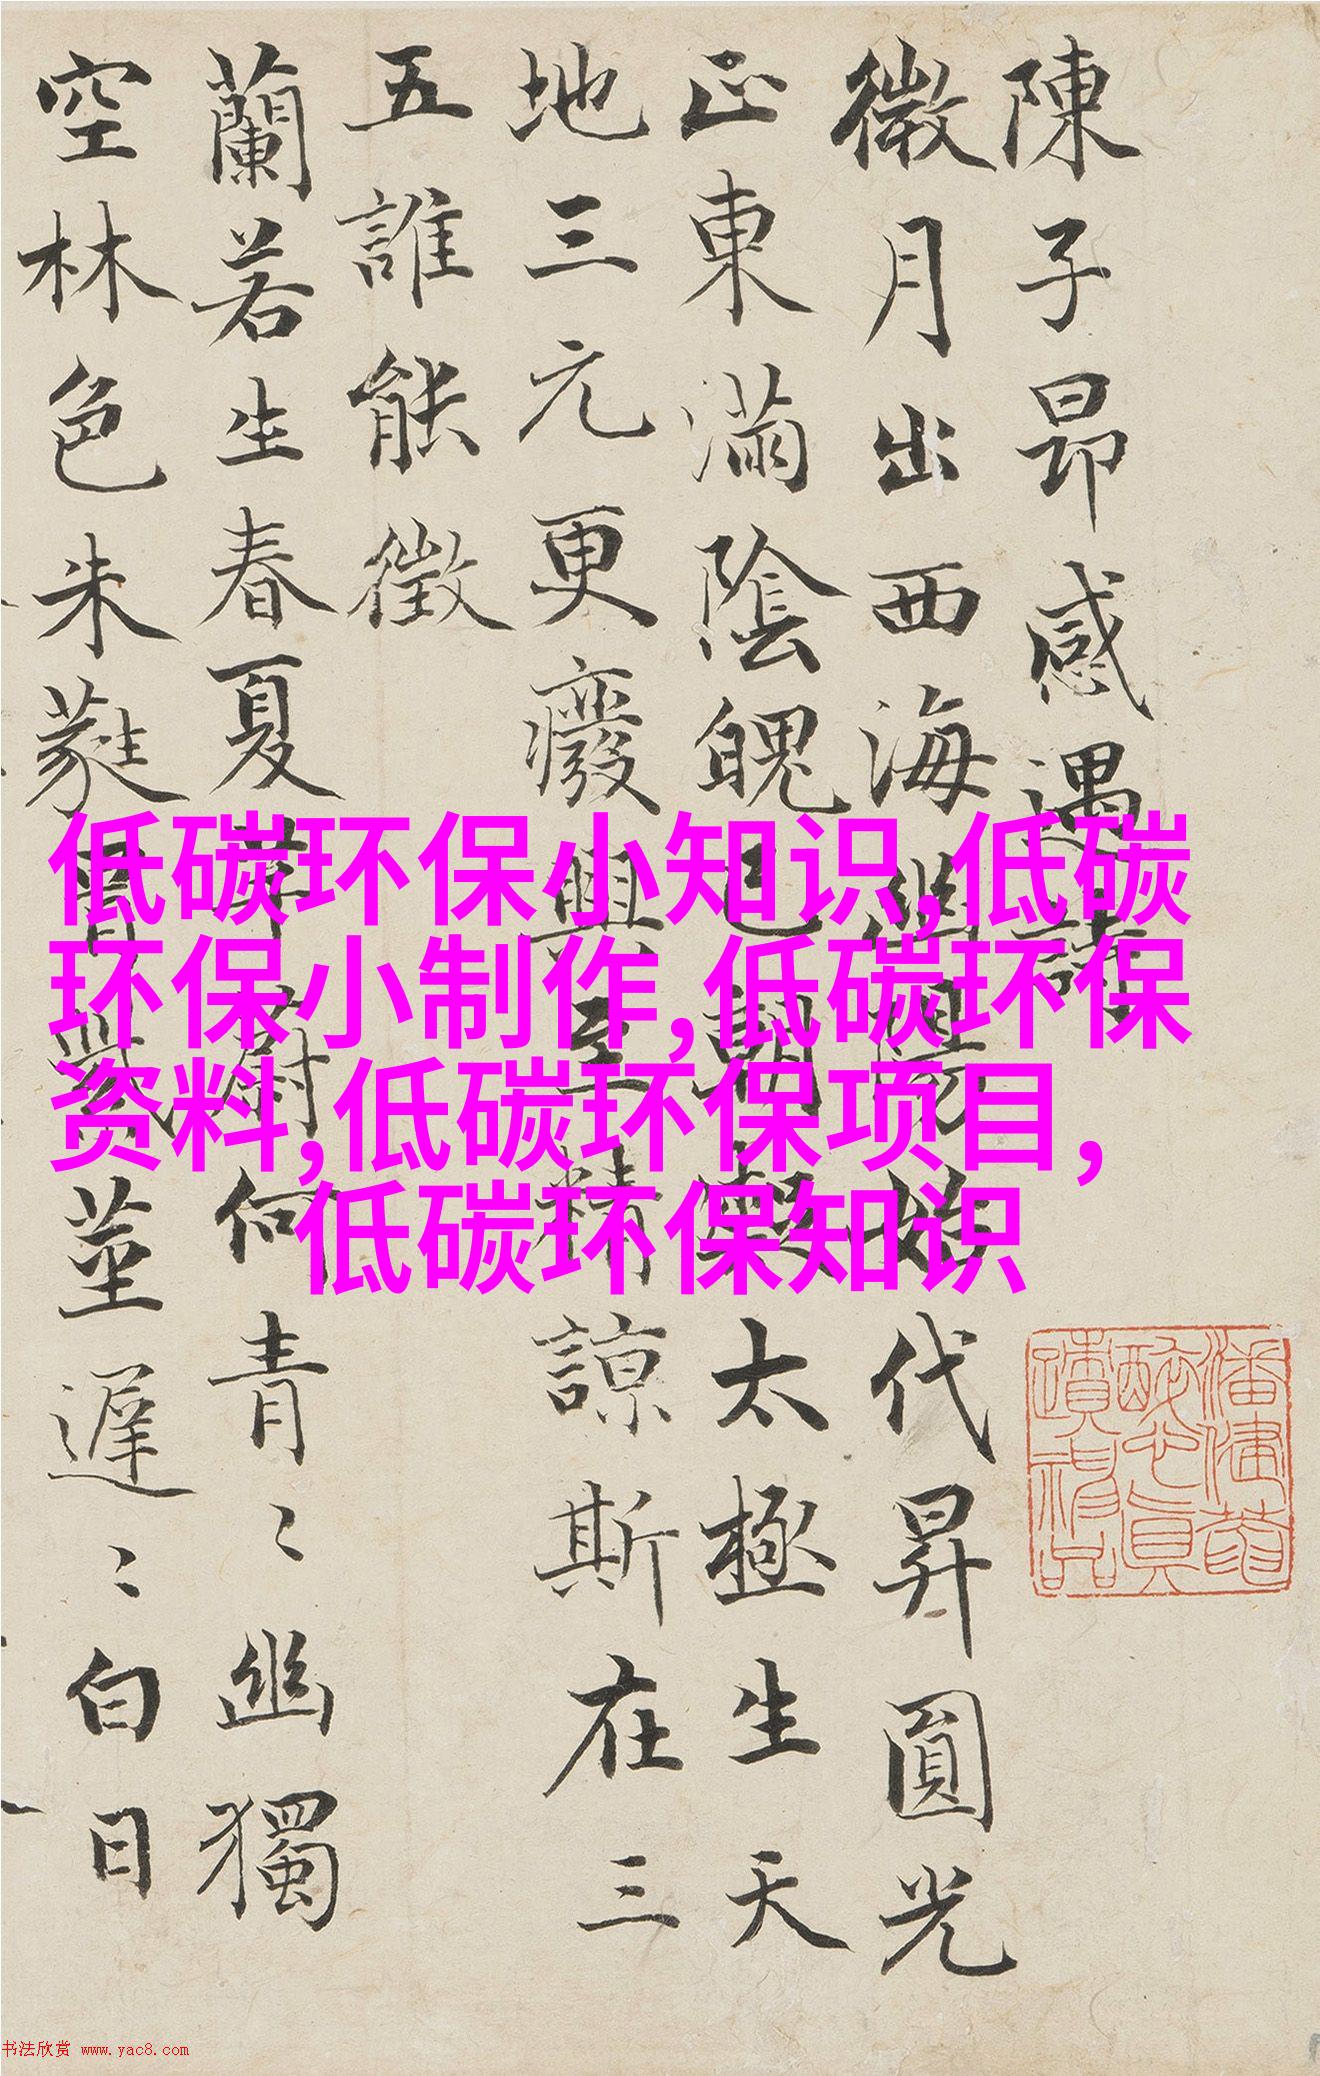 陳子昂感遇詩
微月出西海幽陽始代昇圓光
正東滿陰魄已朝凝太極生天
地三元更癈興至精諒斯在三
五誰能徵
蘭若生春夏芊蔚何青〻幽獨
空林色朱蕤冒紫莖遲〻白日
低碳环保小知识,低碳
环保小制作,低碳环保
资料,低碳环保项目,
低碳环保知识
书法欣赏 www.yac8.com